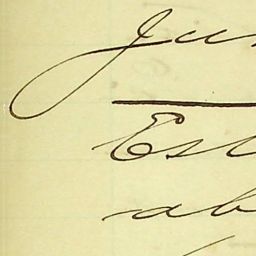 Jun
Est
ab